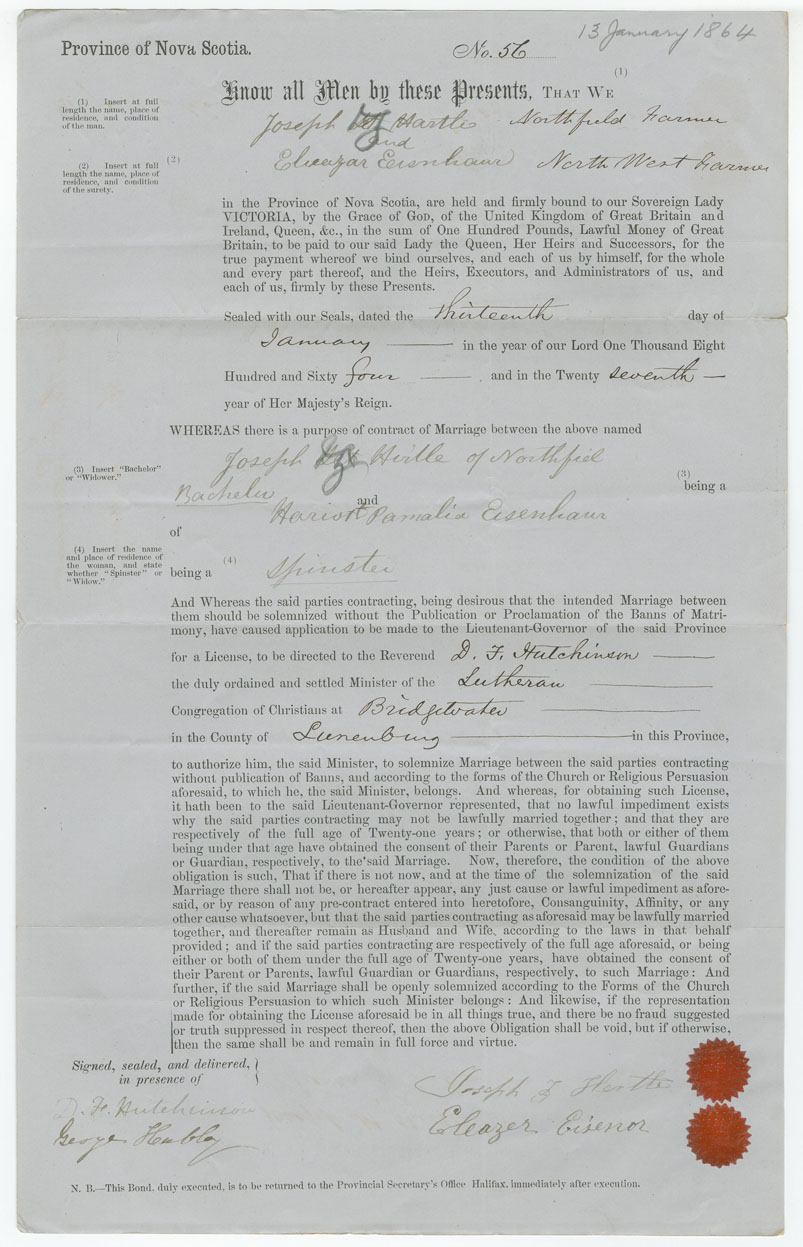 13 January 1864
Province of Nova Scotia.
No. 56
(1)
Know all Men by these Presents, THAT WE
(1) Insert at full
length the name, place of
residence, and condition
of the man.
Joseph Z Hartle Northfield Farmer
and
(2) Insert at full
length the name, place of
residence, and condition
of the surety.
(2)
Eleazar Eisenhaur North West Farmer
in the Province of Nova Scotia, are held and firmly bound to our Sovereign Lady
VICTORIA, by the Grace of GOD, of the United Kingdom of Great Britain and
Ireland, Queen, &c., in the sum of One Hundred Pounds, Lawful Money of Great
Britain, to be paid to our said Lady the Queen, Her Heirs and Successors, for the
true payment whereof we bind ourselves, and each of us by himself, for the whole
and every part thereof, and the Heirs, Executors, and Administrators of us, and
each of us, firmly by these Presents.
Sealed with our Seals, dated the Thirteenth day of
January in the year of our Lord One Thousand Eight
Hundred and Sixty four and in the Twenty seventh
year of Her Majesty's Reign.
WHEREAS there is a purpose of contract of Marriage between the above named
(3) Insert "Bachelor"
or "Widower."
Joseph Z Hirtle of Northfiel
(3)
Bachelor being a
and
Hariot Pamalia Eisenhaur
of
(4) Insert the name
and place of residence of
the woman, and state
whether "Spinster" or
"Widow."
(4)
being a Spinster
And Whereas the said parties contracting, being desirous that the intended Marriage between
them should be solemnized without the Publication or Proclamation of the Banns of Matri-
mony, have caused application to be made to the Lieutenant-Governor of the said Province
for a License, to be directed to the Reverend D. F. Hutchinson
the duly ordained and settled Minister of the Lutheran
Congregation of Christians at Bridgewater
in the County of Lunenburg in this Province,
to authorize him, the said Minister, to solemnize Marriage between the said parties contracting
without publication of Banns, and according to the forms of the Church or Religious Persuasion
aforesaid, to which he, the said Minister, belongs. And whereas, for obtaining such License,
it hath been to the said Lieutenant-Governor represented, that no lawful impediment exists
why the said parties contracting may not be lawfully married together; and that they are
respectively of the full age of Twenty-one years; or otherwise, that both or either of them
being under that age have obtained the consent of their Parents or Parent, lawful Guardians
or Guardian, respectively, to the said Marriage. Now, therefore, the condition of the above
obligation is such, That if there is not now, and at the time of the solemnization of the said
Marriage there shall not be, or hereafter appear, any just cause or lawful impediment as afore-
said, or by reason of any pre-contract entered into heretofore, Consanguinity, Affinity, or any
other cause whatsoever, but that the said parties contracting as aforesaid may be lawfully married
together, and thereafter remain as Husband and Wife, according to the laws in that behalf
provided; and if the said parties contracting are respectively of the full age aforesaid, or being
either or both of them under the full age of Twenty-one years, have obtained the consent of
their Parent or Parents, lawful Guardian or Guardians, respectively, to such Marriage: And
further, if the said Marriage shall be openly solemnized according to the Forms of the Church
or Religious Persuasion to which such Minister belongs: And likewise, if the representation
made for obtaining the License aforesaid be in all things true, and there be no fraud suggested
or truth suppressed in respect thereof, then the above Obligation shall be void, but if otherwise,
then the same shall be and remain in full force and virtue.
Signed, sealed, and delivered,
in presence of
D. F. Hutchinson
George Hubley
Joseph Z Hertle
Eleazer Eisenor
N. B.—This Bond, duly executed, is to be returned to the Provincial Secretary's Office Halifax, immediately after execution.